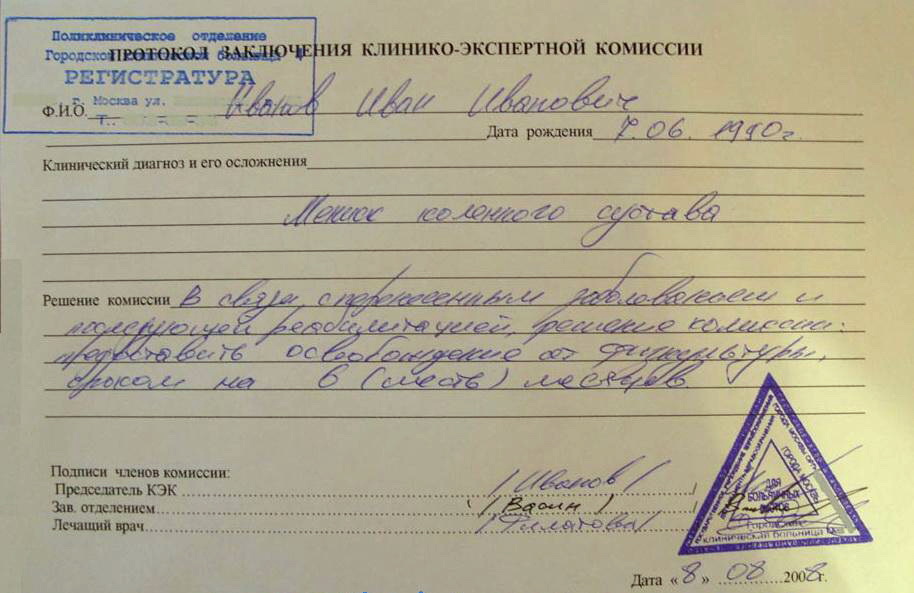 Поликлиническое отделение
ПРОТОКОЛ ЗАКЛЮЧЕНИЯ КЛИНИКО-ЭКСПЕРТНОЙ КОМИССИИ
Городской больницы
РЕГИСТРАТУРА
г. Москва ул.
Ф.И.О. Иванов Иван Иванович
Т.
Дата рождения 7.06. 1990г.
Клинический диагноз и его осложнения
Мениск коленного сустава
Решение комиссии В связи с перенесенным заболеванием и
последующей реабилитацией, решение комиссии:
предоставить освобождение от физкультуры,
сроком на 6 (шесть) месяцев.
Подписи членов комиссии:
Председатель КЭК /Иванов/
Зав. отделением (Васин)
Лечащий врач /Филатова/
ГОРОДА МОСКВЫ
ДЛЯ
БОЛЬНИЧНЫХ
ЛИСТОВ
Городская
клиническая больница №
Дата «8» 08 2008г.